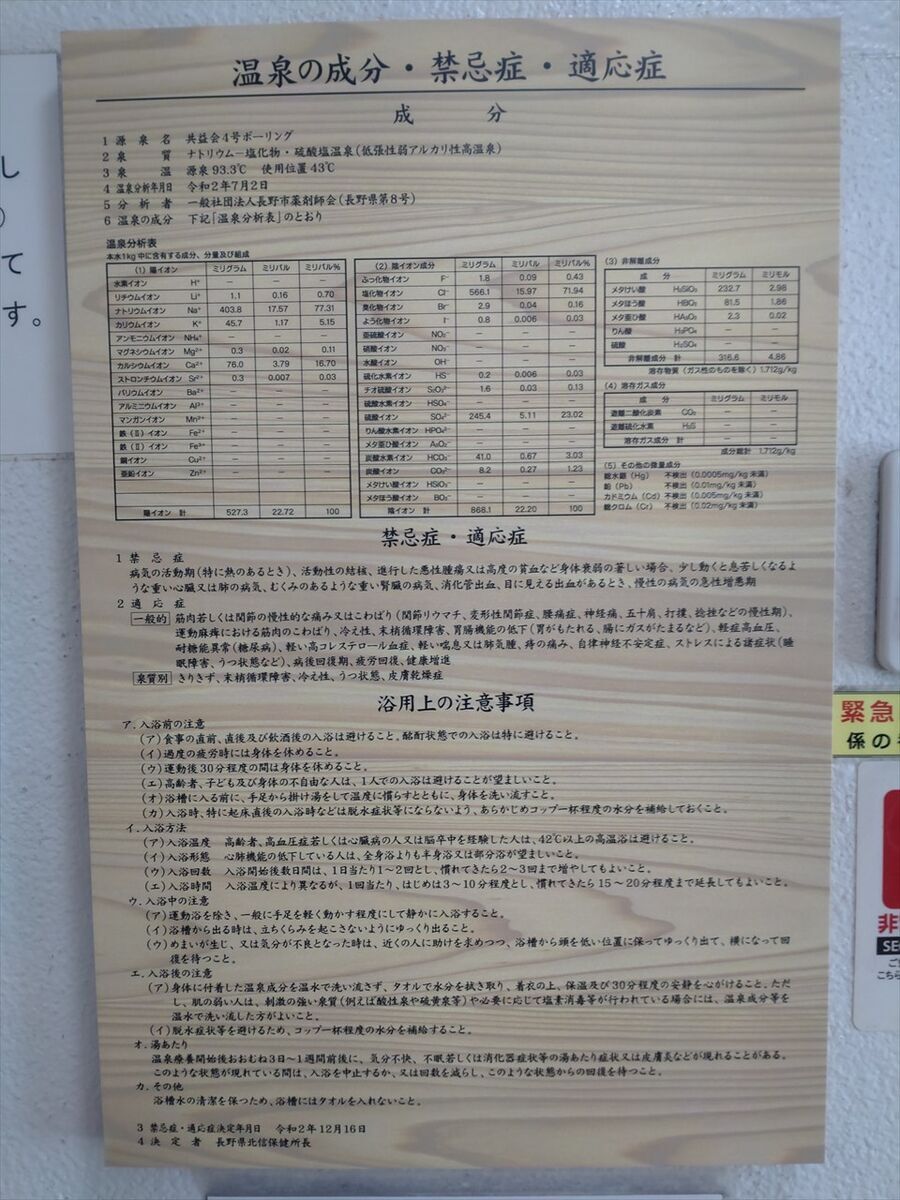 温泉の成分・禁忌症・適応症
成 分
1 源 泉 名 共益会4号ボーリング
2 泉 質 ナトリウム－塩化物・硫酸塩温泉（低張性弱アルカリ性高温泉）
3 泉 温 源泉 93.3℃ 使用位置 43℃
4 温泉分析年月日 令和2年7月2日
5 分 析 者 一般社団法人長野市薬剤師会（長野県第8号）
6 温泉の成分 下記「温泉分析表」のとおり
温泉分析表
本水1kg中に含有する成分、分量及び組成
(1) 陽イオン ミリグラム ミリバル ミリバル%
水素イオン H⁺ － － －
リチウムイオン Li⁺ 1.1 0.16 0.70
ナトリウムイオン Na⁺ 403.8 17.57 77.31
カリウムイオン K⁺ 45.7 1.17 5.15
アンモニウムイオン NH₄⁺ － － －
マグネシウムイオン Mg²⁺ 0.3 0.02 0.11
カルシウムイオン Ca²⁺ 76.0 3.79 16.70
ストロンチウムイオン Sr²⁺ 0.3 0.007 0.03
バリウムイオン Ba²⁺ － － －
アルミニウムイオン Al³⁺ － － －
マンガンイオン Mn²⁺ － － －
鉄（Ⅱ）イオン Fe²⁺ － － －
鉄（Ⅲ）イオン Fe³⁺ － － －
銅イオン Cu²⁺ － － －
亜鉛イオン Zn²⁺ － － －
陽イオン 計 527.3 22.72 100
(2) 陰イオン成分 ミリグラム ミリバル ミリバル%
ふっ化物イオン F⁻ 1.8 0.09 0.43
塩化物イオン Cl⁻ 566.1 15.97 71.94
臭化物イオン Br⁻ 2.9 0.04 0.16
よう化物イオン I⁻ 0.8 0.006 0.03
亜硝酸イオン NO₂⁻ － － －
硝酸イオン NO₃⁻ － － －
水酸イオン OH⁻ － － －
硫化水素イオン HS⁻ 0.2 0.006 0.03
チオ硫酸イオン S₂O₃²⁻ 1.6 0.03 0.13
硫酸水素イオン HSO₄⁻ － － －
硫酸イオン SO₄²⁻ 245.4 5.11 23.02
りん酸水素イオン HPO₄²⁻ － － －
メタ亜ひ酸イオン AsO₂⁻ － － －
炭酸水素イオン HCO₃⁻ 41.0 0.67 3.03
炭酸イオン CO₃²⁻ 8.2 0.27 1.23
メタけい酸イオン HSiO₃⁻ － － －
メタほう酸イオン BO₂⁻ － － －
陰イオン 計 868.1 22.20 100
(3) 非解離成分
成 分 ミリグラム ミリモル
メタけい酸 H₂SiO₃ 232.7 2.98
メタほう酸 HBO₂ 81.5 1.86
メタ亜ひ酸 HAsO₂ 2.3 0.02
りん酸 H₃PO₄ － －
硫酸 H₂SO₄ － －
非解離成分 計 316.6 4.86
溶存物質（ガス性のものを除く）1.712g/kg
(4) 溶存ガス成分
成 分 ミリグラム ミリモル
遊離二酸化炭素 CO₂ － －
遊離硫化水素 H₂S － －
溶存ガス成分 計 － －
成分総計 1.712g/kg
(5) その他の微量成分
総水銀（Hg） 不検出（0.0005mg/kg 未満）
鉛（Pb） 不検出（0.01mg/kg 未満）
カドミウム（Cd）不検出（0.005mg/kg 未満）
総クロム（Cr） 不検出（0.02mg/kg 未満）
禁忌症・適応症
1 禁 忌 症
病気の活動期（特に熱のあるとき）、活動性の結核、進行した悪性腫瘍又は高度の貧血など身体衰弱の著しい場合、少し動くと息苦しくなるよ
うな重い心臓又は肺の病気、むくみのあるような重い腎臓の病気、消化管出血、目に見える出血があるとき、慢性の病気の急性増悪期
2 適 応 症
一般的 筋肉若しくは関節の慢性的な痛み又はこわばり（関節リウマチ、変形性関節症、腰痛症、神経痛、五十肩、打撲、捻挫などの慢性期）、
運動麻痺における筋肉のこわばり、冷え性、末梢循環障害、胃腸機能の低下（胃がもたれる、腸にガスがたまるなど）、軽症高血圧、
耐糖能異常（糖尿病）、軽い高コレステロール血症、軽い喘息又は肺気腫、痔の痛み、自律神経不安定症、ストレスによる諸症状（睡
眠障害、うつ状態など）、病後回復期、疲労回復、健康増進
泉質別 きりきず、末梢循環障害、冷え性、うつ状態、皮膚乾燥症
浴用上の注意事項
ア．入浴前の注意
（ア）食事の直前、直後及び飲酒後の入浴は避けること。酩酊状態での入浴は特に避けること。
（イ）過度の疲労時には身体を休めること。
（ウ）運動後30分程度の間は身体を休めること。
（エ）高齢者、子ども及び身体の不自由な人は、1人での入浴は避けることが望ましいこと。
（オ）浴槽に入る前に、手足から掛け湯をして温度に慣らすとともに、身体を洗い流すこと。
（カ）入浴時、特に起床直後の入浴時などは脱水症状等にならないよう、あらかじめコップ一杯程度の水分を補給しておくこと。
イ．入浴方法
（ア）入浴温度 高齢者、高血圧症若しくは心臓病の人又は脳卒中を経験した人は、42℃以上の高温浴は避けること。
（イ）入浴形態 心肺機能の低下している人は、全身浴よりも半身浴又は部分浴が望ましいこと。
（ウ）入浴回数 入浴開始後数日間は、1日当たり1～2回とし、慣れてきたら2～3回まで増やしてもよいこと。
（エ）入浴時間 入浴温度により異なるが、1回当たり、はじめは3～10分程度とし、慣れてきたら15～20分程度まで延長してもよいこと。
ウ．入浴中の注意
（ア）運動浴を除き、一般に手足を軽く動かす程度にして静かに入浴すること。
（イ）浴槽から出る時は、立ちくらみを起こさないようにゆっくり出ること。
（ウ）めまいが生じ、又は気分が不良となった時は、近くの人に助けを求めつつ、浴槽から頭を低い位置に保ってゆっくり出て、横になって回
復を待つこと。
エ．入浴後の注意
（ア）身体に付着した温泉成分を温水で洗い流さず、タオルで水分を拭き取り、着衣の上、保温及び30分程度の安静を心がけること。ただ
し、肌の弱い人は、刺激の強い泉質（例えば酸性泉や硫黄泉等）や必要に応じて塩素消毒等が行われている場合には、温泉成分等を
温水で洗い流した方がよいこと。
（イ）脱水症状等を避けるため、コップ一杯程度の水分を補給すること。
オ．湯あたり
温泉療養開始後おおむね3日～1週間前後に、気分不快、不眠若しくは消化器症状等の湯あたり症状又は皮膚炎などが現れることがある。
このような状態が現れている間は、入浴を中止するか、又は回数を減らし、このような状態からの回復を待つこと。
カ．その他
浴槽水の清潔を保つため、浴槽にはタオルを入れないこと。
3 禁忌症・適応症決定年月日 令和2年12月16日
4 決 定 者 長野県北信保健所長
し
て
す。
緊急
係の
非
SE
ご
こちら